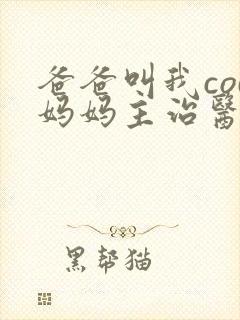 爸爸叫我co
妈妈主治醫
黑帮猫